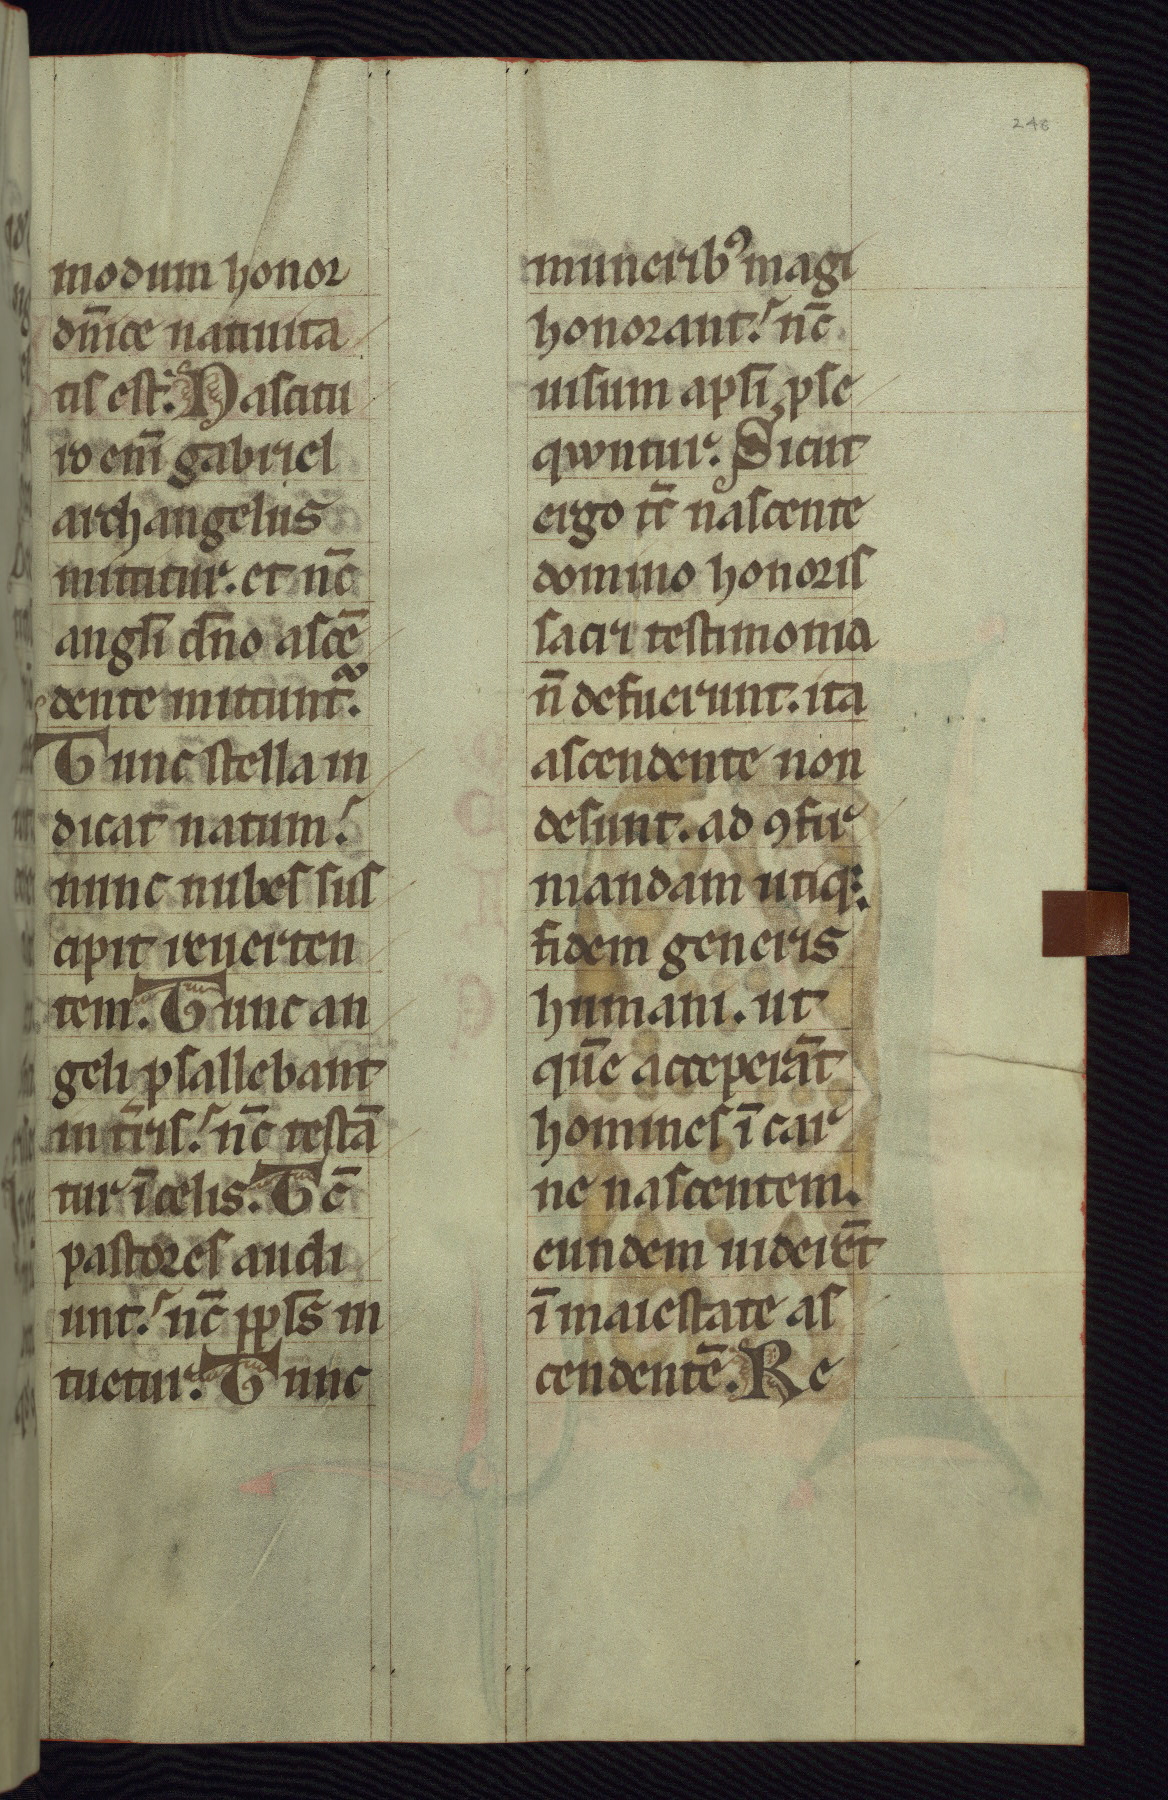 246
modum honor
dn̄ice natiuita
tis est. Nascitu
ro eni̅ gabriel
archangelus
mittitur. et nc̄
angl̄i dn̄o ascē
dente mittunt᷑.
Tunc stella in
dicat natum.
nunc nubes sus
cipit reuerten
tem. Tunc an
geli psallebant
in t̄ris. nc̄ testā
tur ī celis. Tc̄
pastores audi
unt. nc̄ pp̄ls in
tuetur. Tunc
munerib⁹ magi
honorant. nc̄
uisum apl̄i ꝑse
quntur. Sicut
ergo tc̄ nascente
domino honoris
sacri testimonia
n̄ defuerunt. ita
ascendente non
desunt. ad ꝯfir
mandam utiqꝫ.
fidem generis
humani. ut
quē acceperāt
homines ī car
ne nascentem.
eundem uiderēt
ī maiestate as
cendentē. Re